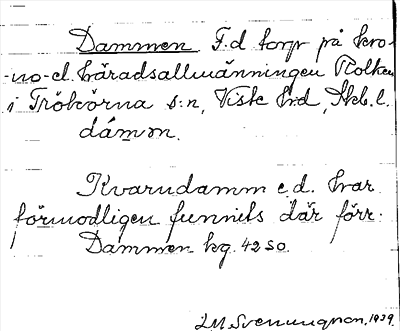 Dammen F.d torp på kro-
-no-el. häradsallmänningen Rolken
i Trökörna s:n, Viste hrd, Skb.l.
dám̅m.
Kvarndamm e.d. har
förmodligen funnits där förr.
Dammen hg. 4250.
1939.